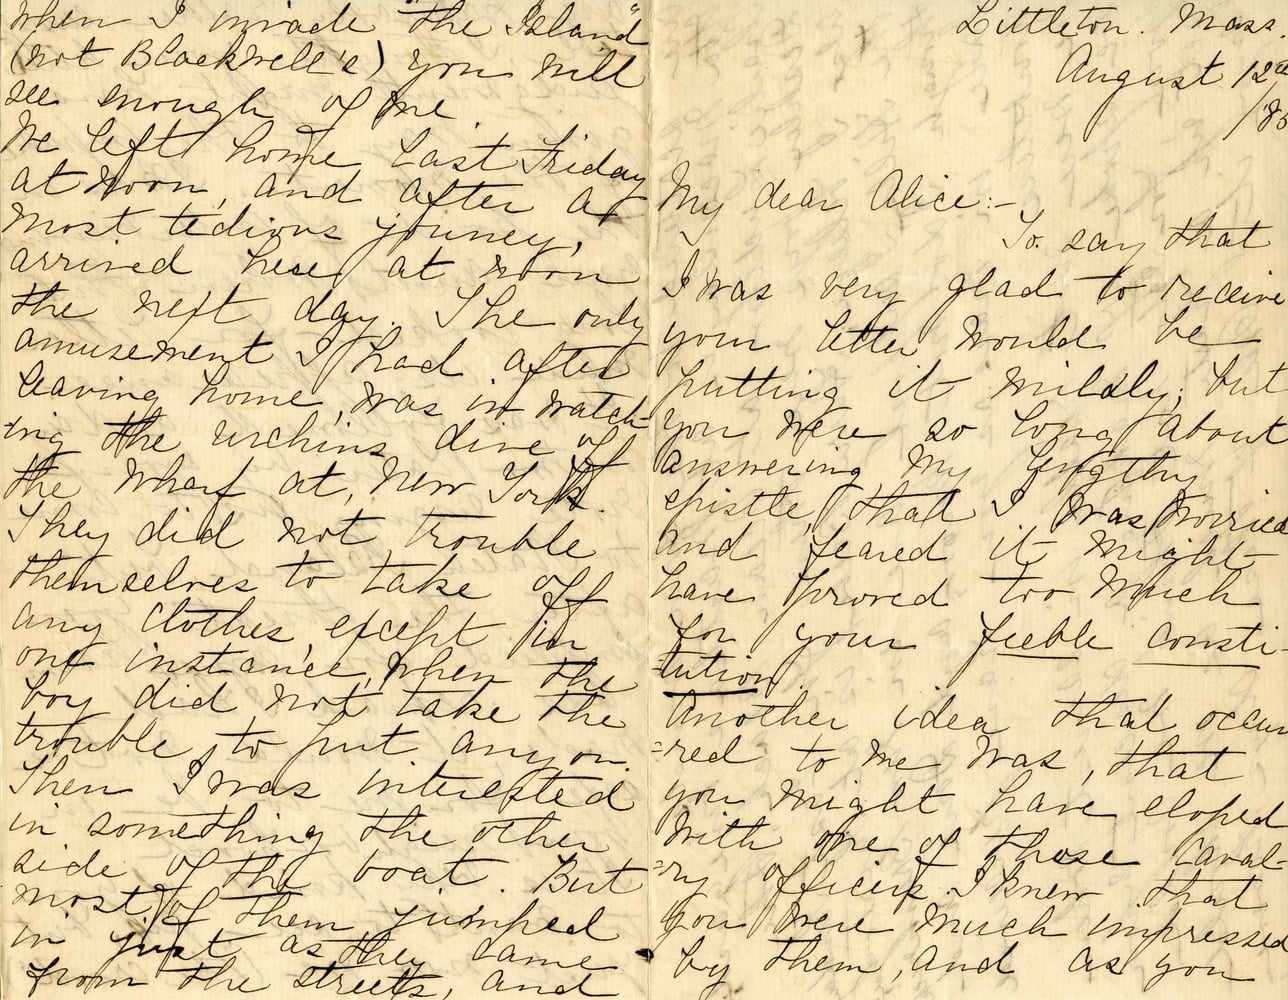 Littleton. Mass.
August 12th
/85
My dear Alice:-
To say that
I was very glad to receive
your letter would be
putting it mildly; but
you were so long about
answering my lengthy
epistle, that I was worried
and feared it might
have proved too much
for your feeble consti-
=tution.
Another idea that occur
=red to me was, that
you might have eloped
with one of those Caval-
=ry officers. I knew that
you were much impressed
by them, and as you
when I invade "the Island"
(not Blackwell's) you will
see enough of me.
We left home last Friday
at noon, and after a
most tedious jouney,
arrived here at noon
the next day. The only
amusement I had after
leaving home, was in watch-
=ing the urchins dive off
the wharf at, New York.
They did not trouble
themselves to take off
any clothes except in
one instance, when the
boy did not take the
trouble to put any on.
Then I was interested
in something the other
side of the boat. But
most of them jumped
in just as they came
from the streets, and